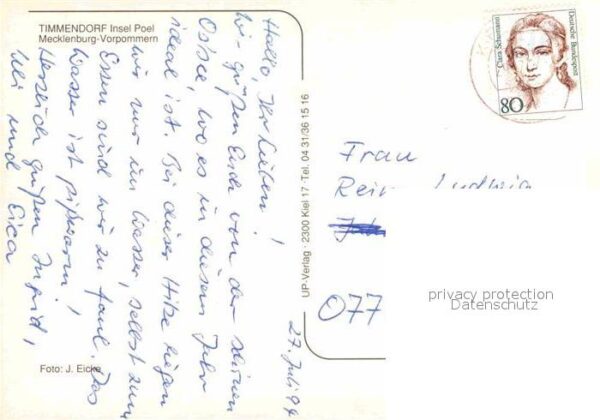 TIMMENDORF Insel Poel
Mecklenburg-Vorpommern
27. Juli 94
Hallo, Ihr Lieben!
Wir grüßen Euch von der schönen
Ostsee, wo es in diesem Jahr
ideal ist. Bei dieser Hitze liegen
wir nur im Wasser, selbst zum
Essen sind wir zu faul. Das
Wasser ist pipiwarm!
Herzlich grüßen Ingrid,
Uli und Eica
Foto: J. Eicke
UP-Verlag · 2300 Kiel 17 · Tel. 04 31/36 15 16
Clara Schumann
Deutsche Bundespost
80
Frau
Ludwig
077
privacy protection
Datenschutz